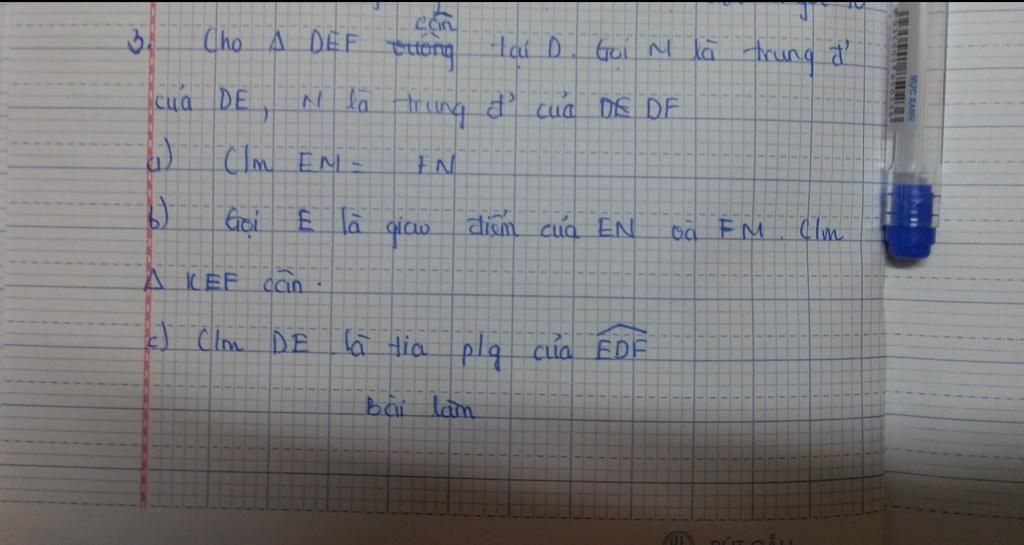 cân
3. Cho Δ DEF vuông tại D. Gọi M là trung đ'
của DE, N là trung đ' của DE DF
a) C/m EM = FN
b) Gọi E là giao điểm của EN và FM. C/m
Δ KEF cân.
c) C/m DE là tia p/g của EDF
Bài làm
MỰC XANH